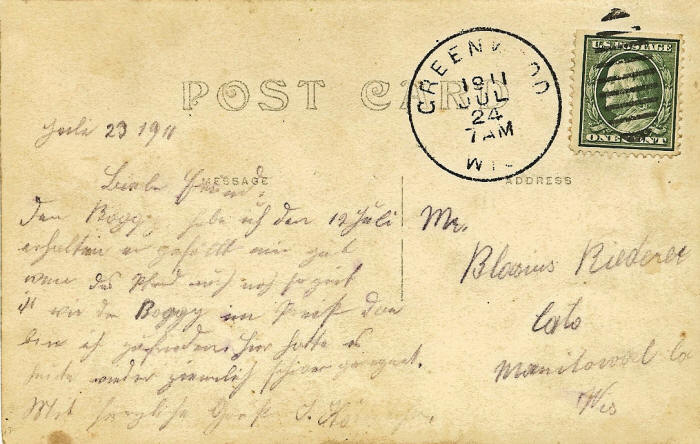 POST CARD
GREENWOOD
1911
JUL
24
7AM
WIS
U.S. POSTAGE
ONE CENT
Juli 23 1911
MESSAGE
ADDRESS
Liebe Freund
Den Boggy habe ich den 12 Juli
erhalten er gefällt mir gut
wen das Pferd auch noch so gut
ist wie der Boggy im Preis dan
bin ich zufrieden hier hatte es
heute wieder ziemlich schwer geregnet.
Mit herzliche Gruß J.
Mr.
Blasius Riederer
Cato
Manitowoc Co
Wis